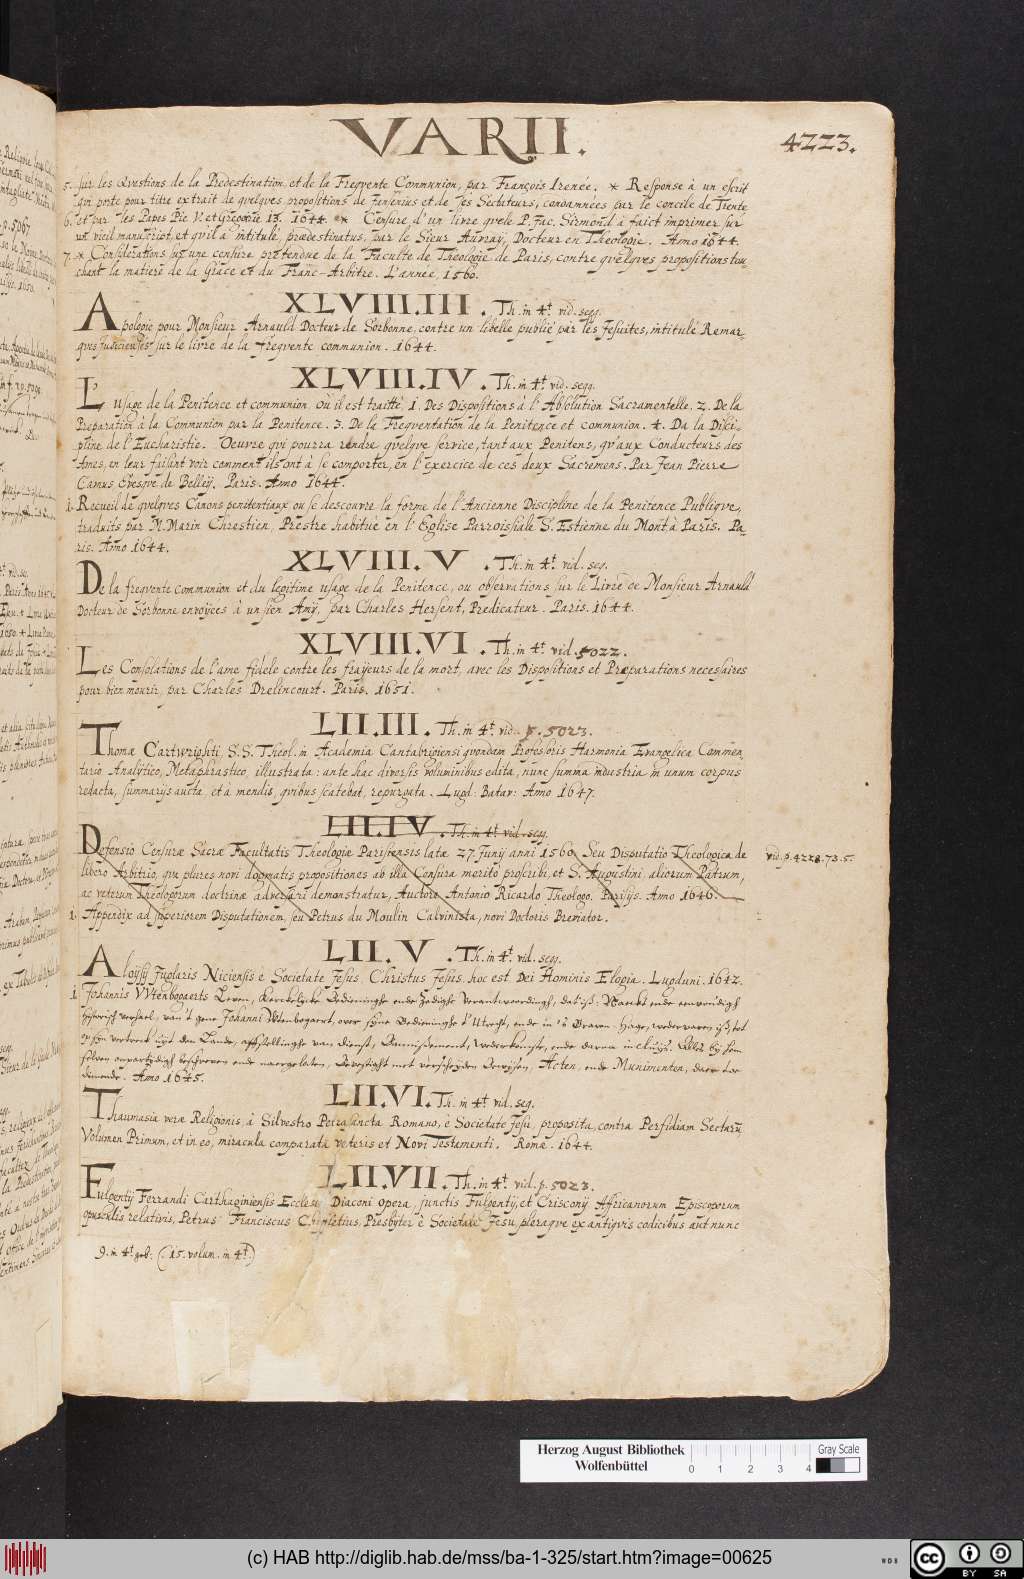 VARII.
4223.
5. sur les Questions de la Predestination, et de la Freqvente Communion, par François Irenée. * Response à un escrit
qui porte pour titre extrait de quelques propositions de Jansenius et de ses Sectateurs, condamnées par le concile de Trente
6. et par les Papes Pie V. et Gregoire 13. 1644. * Censure d'un livre que le P. Jac. Sirmond a faict imprimer sur
un vieil manuscript, et qu'il a intitulé, prædestinatus, par le Sieur Auvray, Docteur en Theologie. Anno 1644.
7. * Considerations sur une censure pretendue de la Faculte de Theologie de Paris, contre quelques propositions tou
chant la matiere de la Grace et du Franc-Arbitre. L'année, 1560.
XLVIII.III. Th. in 4t. vid. seqq.
Apologie pour Monsieur Arnauld Docteur de Sorbonne, contre un libelle publié par les Jesuites, intitulé Remar-
ques judicieuses sur le livre de la frequente communion. 1644.
XLVIII.IV. Th. in 4t. vid. seqq.
L'usage de la Penitence et communion. Où il est traitté 1. Des Dispositions à l'Absolution Sacramentelle. 2. De la
Preparation à la Communion par la Penitence. 3. De la Frequentation de la Penitence et communion. 4. Da la Disci-
pline de l'Eucharistie. Oeuvre qui pourra rendre quelque service, tant aux Penitens, qu'aux Conducteurs des
Ames, en leur faisant voir comment ils ont à se comporter, en l'exercice de ces deux Sacremens. Par Jean Pierre
Camus Evesque de Belley. Paris. Anno 1644.
1. Recueil de quelques Canons penitentiaux ou se descouvre la forme de l'Ancienne Discipline de la Penitence Publique,
traduits par M. Marin Chrestien, Prestre habitué en l'Eglise Parroissiale S. Estienne du Mont à Paris. Pa-
ris. Anno 1644.
XLVIII.V. Th. in 4t. vid. seq.
De la frequente communion et du legitime usage de la Penitence, ou observations sur le Livre de Monsieur Arnauld
Docteur de Sorbonne envoyees à un sien Amy, par Charles Hersent, Predicateur. Paris. 1644.
XLVIII.VI. Th. in 4t. vid. 5022.
Les Consolations de l'ame fidele contre les frayeurs de la mort, avec les Dispositions et Præparations necessaires
pour bien mourir, par Charles Drelincourt. Paris. 1651.
LII.III. Th. in 4t. vid. p. 5023.
Thomæ Cartwrighti S.S. Theol. in Academia Cantabrigiensi quondam Professoris Harmonia Evangelica Commen
tario Analytico, Metaphrastico, illustrata: ante hac diversis voluminibus edita, nunc summa industria in unum corpus
redacta, summarijs aucta, et à mendis, quibus scatebat, repurgata. Lugd: Batav: Anno 1647.
LII.IV. Th. in 4t. vid. seqq.
Defensio Censuræ Sacræ Facultatis Theologiæ Parisiensis latæ 27. Junij anni 1560. Seu Disputatio Theologica de
vid. p. 4228.73.5.
libero Arbitrio, qua plures novi dogmatis propositiones ab illa Censura merito proscribi, et S. Augustini aliorum Patrum,
ac veterum Theologorum doctrinæ adversari demonstratur, Auctore Antonio Ricardo Theologo. Parisijs. Anno 1646.
1. Appendix ad superiorem Disputationem, seu Petrus du Moulin Calvinista, novi Doctoris Breviator.
LII.V. Th. in 4t. vid. seq.
Aloysij Juglaris Niciensis è Societate Jesus Christus Jesus, hoc est Dei Hominis Elogia. Lugduni. 1642.
1. Johannis VVtenbogaerts Leven, Kerckelycke Bedieninghe ende zedighe Verantwoordingh, dat is: Naeckt ende eenvoudigh
historisch verhael, van 't gene Johanni Wtenbogaert, over syne Bedieninghe t'Utrecht, ende in 's Graven-Hage, wedervaren is, tot
op syn vertreck uyt den Lande,
Acten, ende Munimenten, daer toe
dienende. Anno 1645.
LII.VI. Th. in 4t. vid. seq.
Thaumasia veræ Religionis, à Silvestro Petrasancta Romano, è Societate Jesu, proposita, contra Perfidiam Sectarū.
Volumen Primum, et in eo, miracula comparata veteris et Novi Testamenti. Romæ. 1644.
LII.VII. Th. in 4t. vid. p. 5023.
Fulgentij Ferrandi Carthaginiensis Ecclesiæ Diaconi opera, junctis Fulgentij, et Crisconij Affricanorum Episcoporum
opusculis relativis, Petrus Franciscus Chiffletius, Presbyter è Societate Jesu, pleraque ex antiquis codicibus aut nunc
9. in 4t. geb. (. 15. volum. in 4t.)
Herzog August Bibliothek
Wolfenbüttel
0 1 2 3 4
Gray Scale
(c) HAB http://diglib.hab.de/mss/ba-1-325/start.htm?image=00625
WDB
cc BY SA